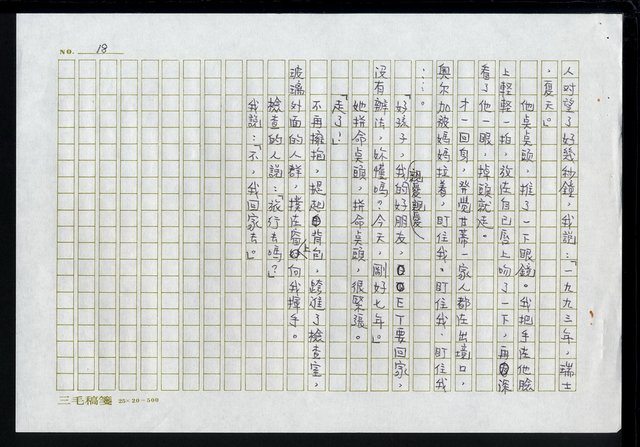 NO. 18
人对望了好幾秒鐘，我說：「一九九三年，瑞士
，夏天。」
他桌桌頭，推了一下眼鏡。我把手在他臉
上輕輕一拍，放在自己唇上吻了一下，再深
看了他一眼，掉頭就走。
才一回身，發覺甘蒂一家人都在出境口，
奧尔加被媽媽拉着，盯住我。盯住我、盯住我
……。
「好孩子，我的好朋友，親愛親愛ET要回家，
没有辦法，妳懂嗎？今天，剛好七年。」
她拼命桌頭，拼命桌頭，很緊張。
「走了！」
不再擁抱，提起背包，跨進了檢查室，
玻璃外面的人群，撲在窗上向我揮手。
檢查的人說：「旅行去嗎？」
我說：「不，我回家去。」
三毛稿箋 25×20=500